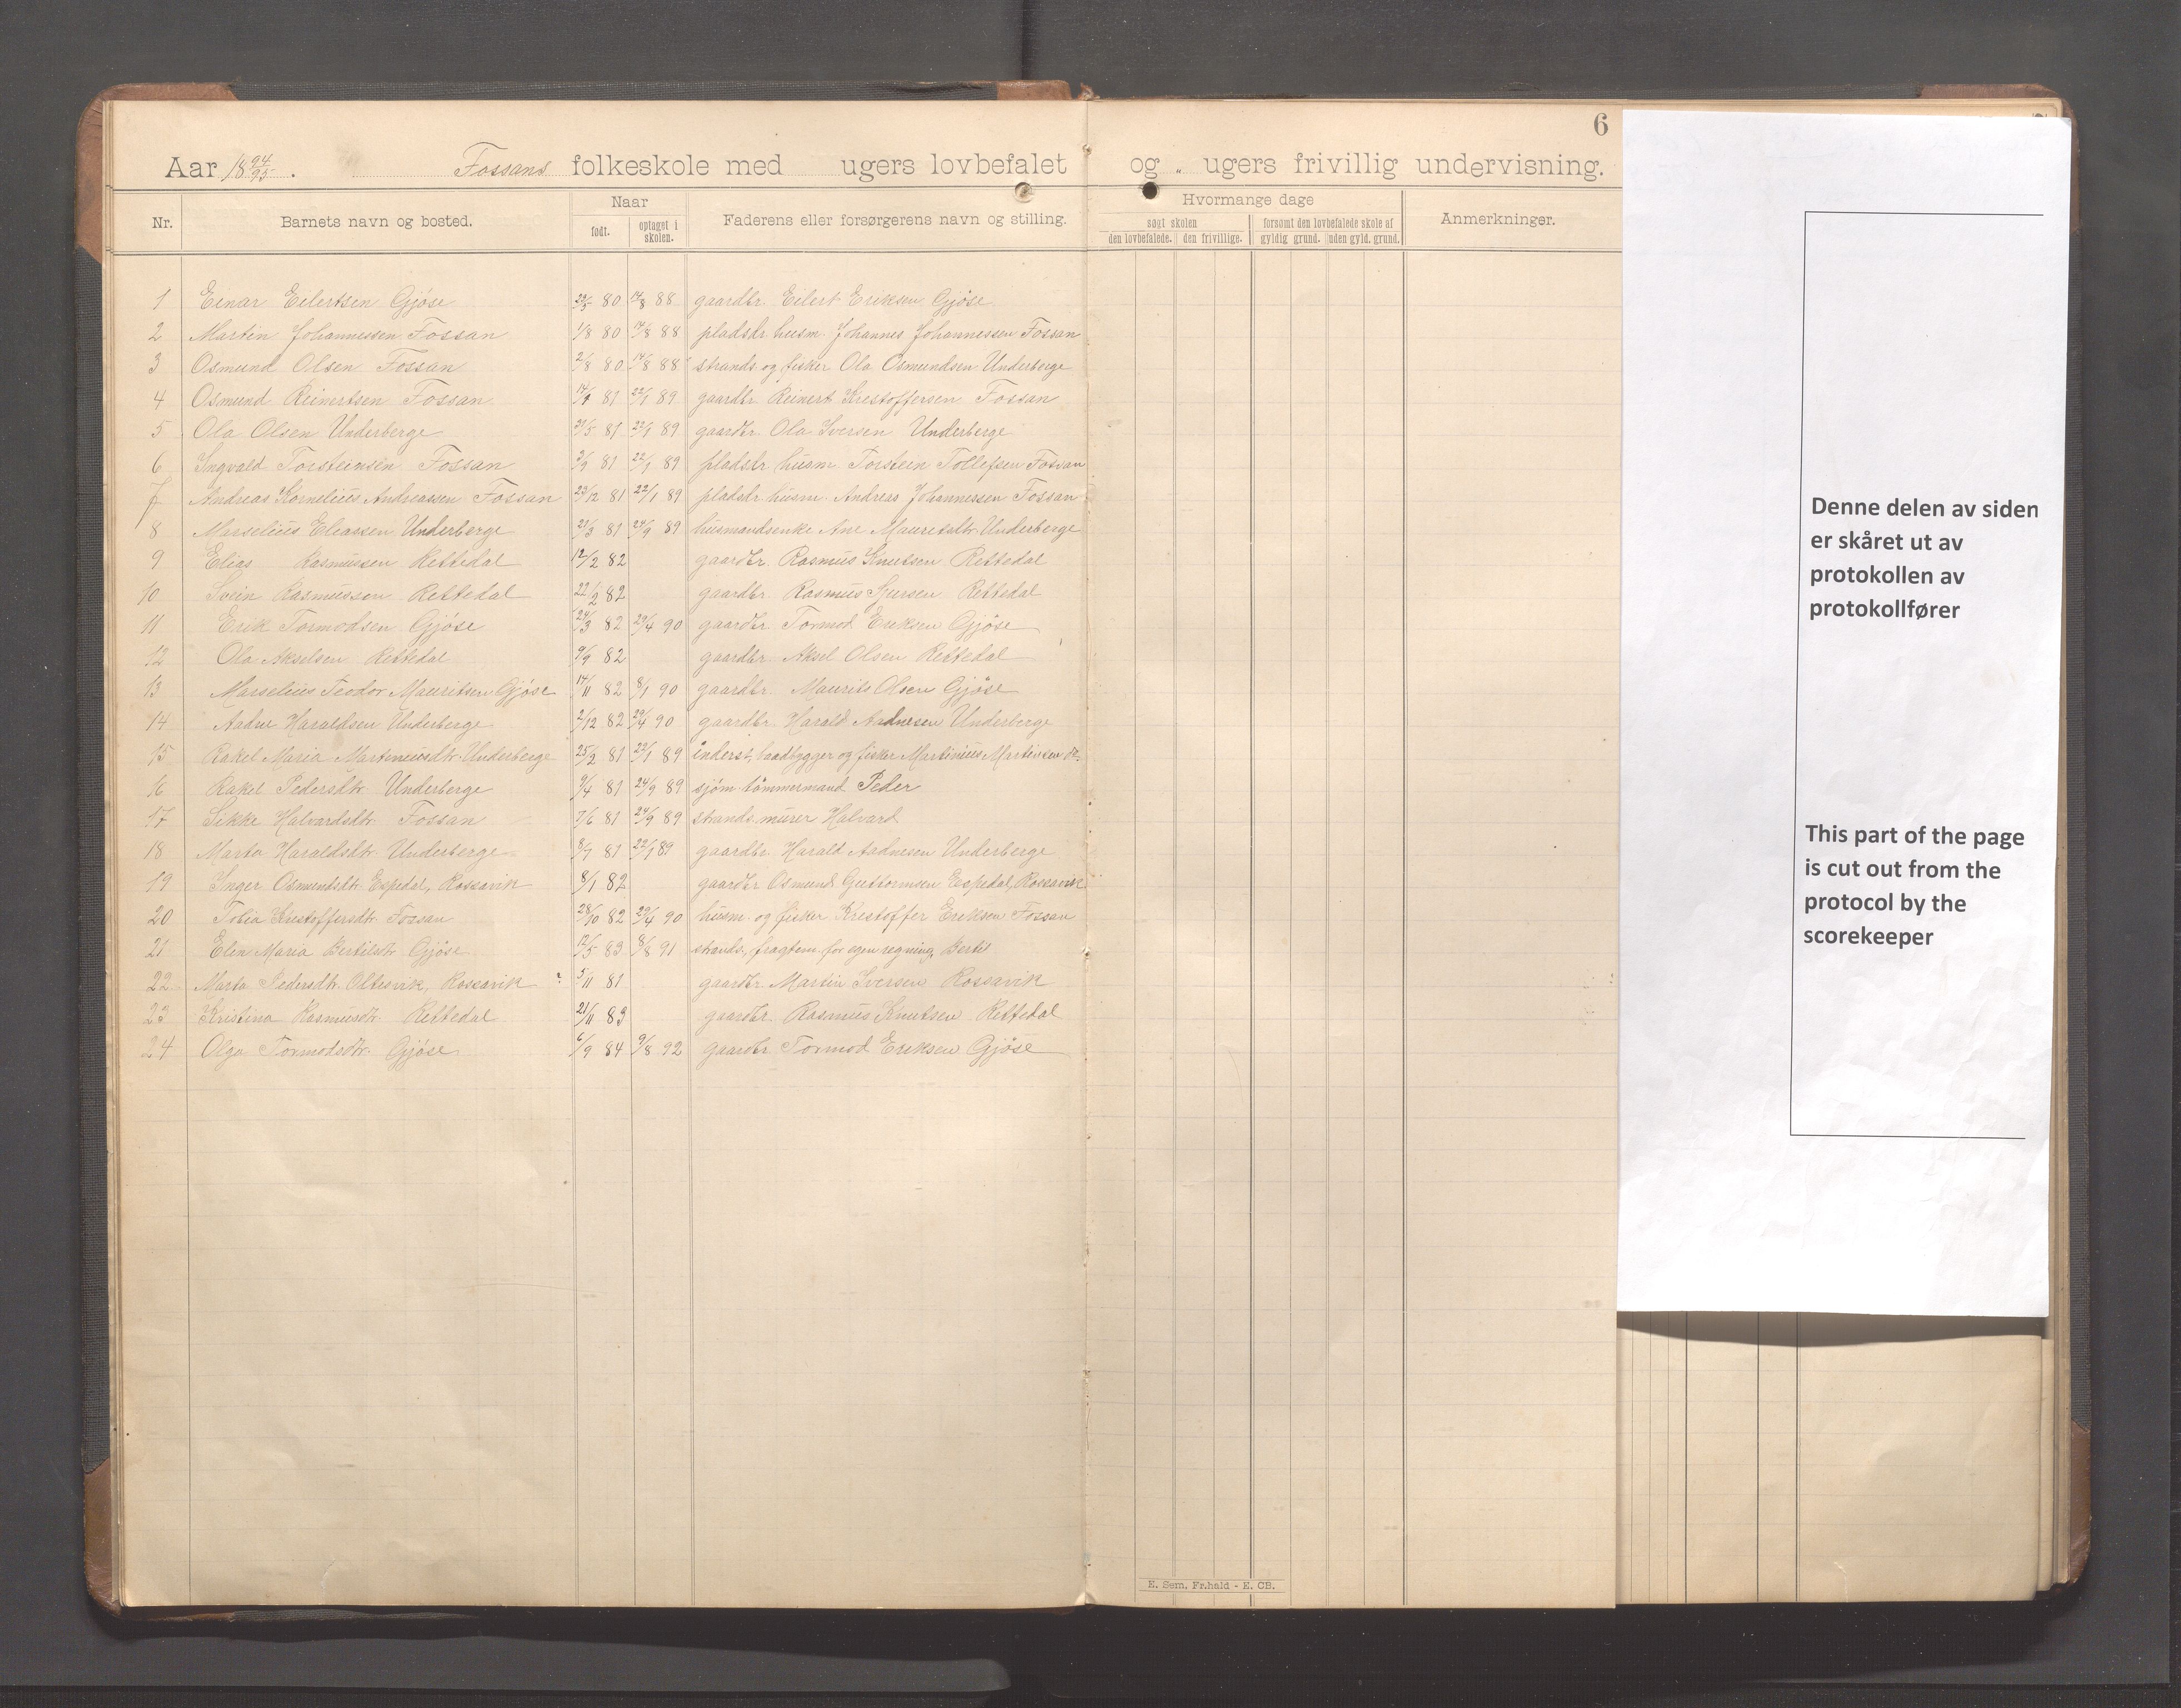 6
Aar 18 94/95. Fossans folkeskole med ugers lovbefalet og „ ugers frivillig undervisning.
Nr. Barnets navn og bosted. Naar født. optaget i skolen. Faderens eller forsørgerens navn og stilling. Hvormange dage søgt skolen den lovbefalede. den frivillige. forsømt den lovbefalede skole af gyldig grund. uden gyld. grund. Anmerkninger.
1 Einar Eilertsen Gjöse 80 14/8 88 gaardbr. Eilert Eriksen Gjöse
2 Martin Johannessen Fossan 1/8 80 14/8 88 pladsbr. husm. Johannes Johannessen Fossan
3 Osmund Olsen Fossan 2/8 80 14/8 88 strands. og fisker Ola Osmundsen Underberge
4 Osmund Reinertsen Fossan 81 22/1 89 gaardbr. Reinert Kristoffersen Fossan
5 Ola Olsen Underberge 31/5 81 22/1 89 gaardbr. Ola Iversen Underberge
6 Ingvald Torsteinsen Fossan 3/9 81 22/1 89 pladsbr. husm. Torstein Tollefsen Fossan
7 Andreas Kornelius Andreassen Fossan 23/12 81 22/1 89 pladsbr. husm. Andreas Johannessen Fossan
8 Marselius Eliassen Underberge 21/3 81 24/9 89 husmandsenke Ane Mauritsdtr. Underberge
9 Elias Rasmussen Rettedal 12/2 82 gaardbr. Rasmus Knutsen Rettedal
10 Svein Rasmussen Rettedal 22/2 82 gaardbr. Rasmus Sjursen Rettedal
11 Erik Tormodsen Gjöse 24/3 82 29/4 90 gaardbr. Tormod Eriksen Gjöse
12 Ola Akselsen Rettedal 9/9 82 gaardbr. Aksel Olsen Rettedal
13 Marselius Teodor Mauritsen Gjöse 14/11 82 8/1 90 gaardbr. Maurits Olsen Gjöse
14 Aadne Haraldsen Underberge 2/12 82 29/4 90 gaardbr. Harald Aadnesen Underberge
15 Rakel Maria Martiniusdtr. Underberge 25/2 81 22/1 89 inderst, baadbygger og fisker Martinius Martinsen
16 Rakel Pedersdtr. Underberge 9/4 81 24/9 89 sjöm. tömmermand Peder
17 Sikke Halvardsdtr. Fossan 7/6 81 24/9 89 strands. murer Halvard
18 Marta Haraldsdtr. Underberge 8/7 81 22/1 89 gaardbr. Harald Aadnesen Underberge
19 Inger Osmundsdtr. Espedal, Rossavik 8/1 82 gaardbr. Osmund Guttormsen Espedal, Rossavik
20 Tobia Kristoffersdtr. Fossan 28/10 82 29/4 90 husm. og fisker Kristoffer Eriksen Fossan
21 Elin Maria Bertilsdtr. Gjöse 12/5 83 8/8 91 strands., fragtem. for egen regning, Bertil
22 Marta Pedersdtr. Oltesvik, Rossavik ? 5/11 81 gaardbr. Martin Iversen Rossavik
23 Kristina Rasmusdtr. Rettedal 21/11 83 gaardbr. Rasmus Knutsen Rettedal
24 Olga Tormodsdtr. Gjöse 6/9 84 9/8 92 gaardbr. Tormod Eriksen Gjöse
E. Sem. Fr.hald - E. CB.
Denne delen av siden
er skåret ut av
protokollen av
protokollfører
This part of the page
is cut out from the
protocol by the
scorekeeper